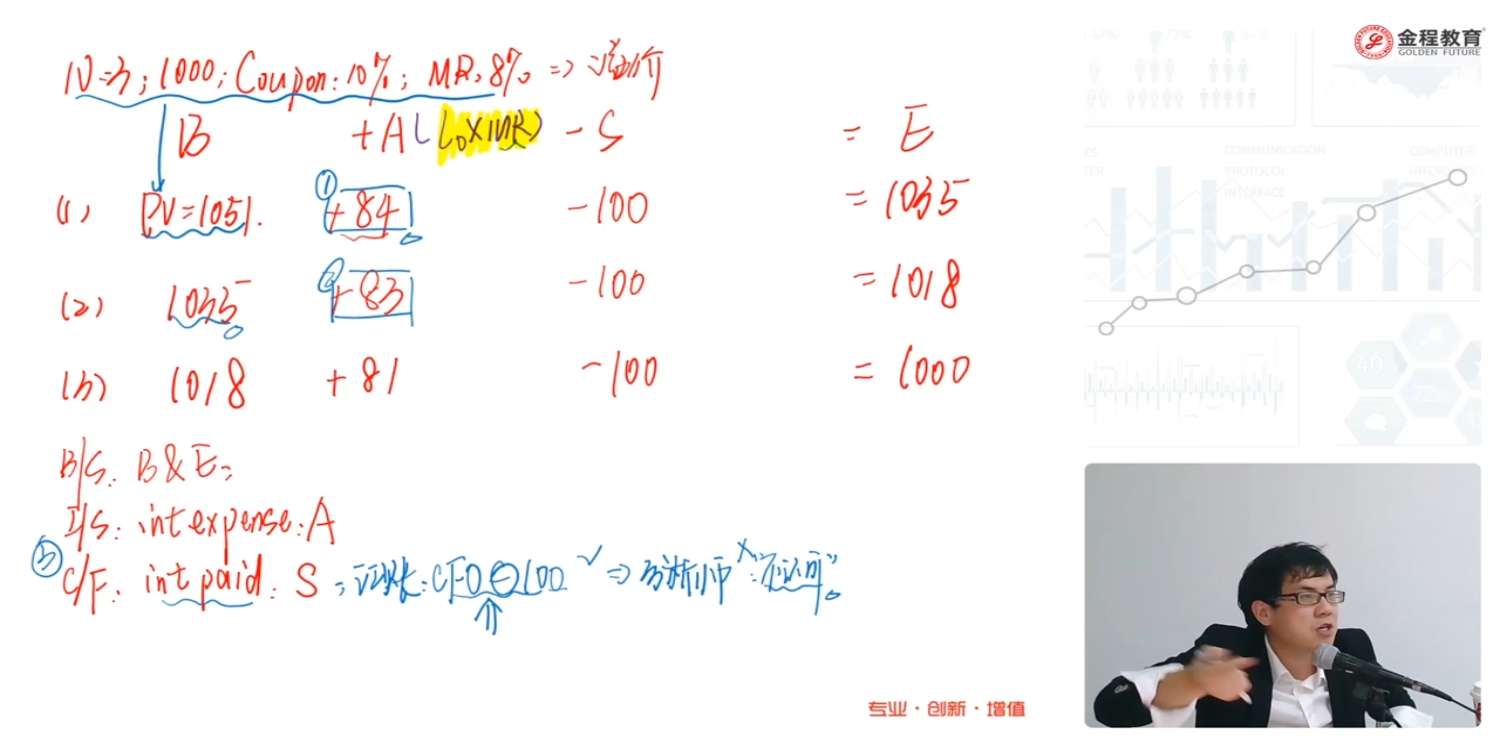 N=3; 1000; Coupon: 10%; MR: 8% => 溢价
B + A (L0×MR) - S = E
(1) PV=1051. ① +84 -100 = 1035
(2) 1035 ② +83 -100 = 1018
(3) 1018 +81 -100 = 1000
B/S: B & E;
I/S: int expense: A
③ C/F: int paid: S; 记账: CFO ⊖100 ✓ => 分析师 ×: "应可"
金程教育
GOLDEN FUTURE
COMMUNICATION
PROTOCOL
INTERFACE
专业·创新·增值